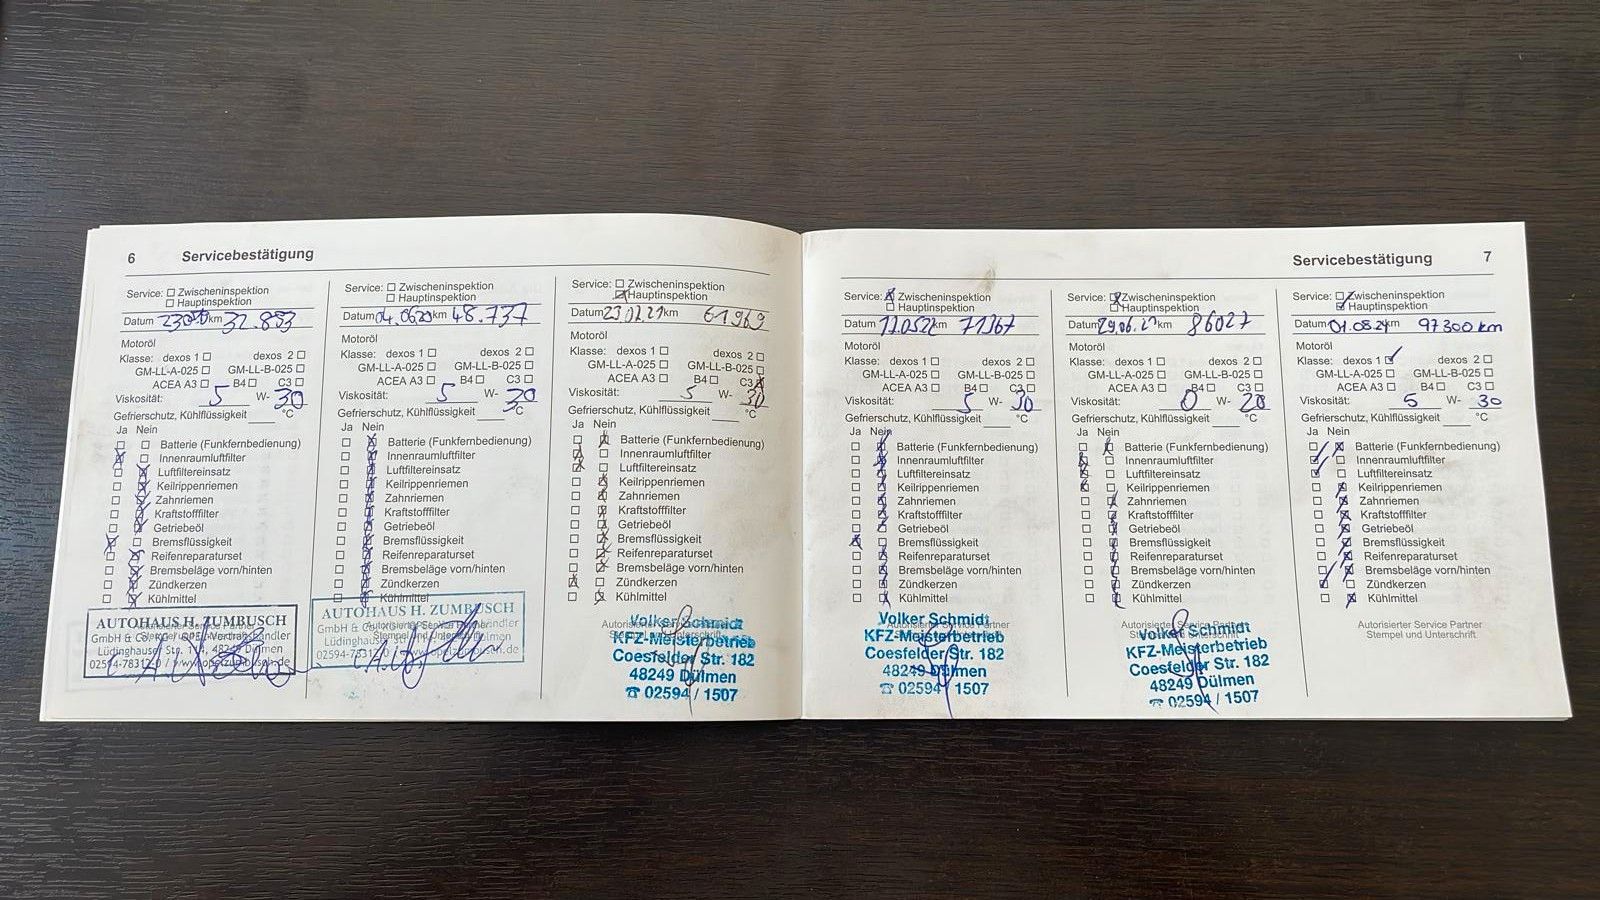 6 Servicebestätigung
Service: ☐ Zwischeninspektion
☐ Hauptinspektion
Datum km 32.853
Motoröl
Klasse: dexos 1 ☐ dexos 2 ☐
GM-LL-A-025 ☐ GM-LL-B-025 ☐
ACEA A3 ☐ B4 ☐ C3 ☐
Viskosität: 5 W- 30
Gefrierschutz, Kühlflüssigkeit ____ °C
Ja Nein
☐ ☐ Batterie (Funkfernbedienung)
☒ ☐ Innenraumluftfilter
☐ ☒ Luftfiltereinsatz
☐ ☒ Keilrippenriemen
☐ ☒ Zahnriemen
☐ ☒ Kraftstofffilter
☐ ☒ Getriebeöl
☒ ☐ Bremsflüssigkeit
☐ ☒ Reifenreparaturset
☐ ☒ Bremsbeläge vorn/hinten
☐ ☒ Zündkerzen
☐ ☒ Kühlmittel
AUTOHAUS H. ZUMBUSCH
Autorisierter Service Partner
Stempel und Unterschrift
GmbH & Co. KG OPEL-Vertragshändler
Lüdinghauser Str. 114, 48249 Dülmen
02594-7831270 / www.opelzumbusch.de
Service: ☐ Zwischeninspektion
☐ Hauptinspektion
Datum 04.06.20 km 48.737
Motoröl
Klasse: dexos 1 ☐ dexos 2 ☐
GM-LL-A-025 ☐ GM-LL-B-025 ☐
ACEA A3 ☐ B4 ☐ C3 ☐
Viskosität: 5 W- 30
Gefrierschutz, Kühlflüssigkeit ____ °C
Ja Nein
☐ ☒ Batterie (Funkfernbedienung)
☐ ☒ Innenraumluftfilter
☐ ☒ Luftfiltereinsatz
☐ ☒ Keilrippenriemen
☐ ☒ Zahnriemen
☐ ☒ Kraftstofffilter
☐ ☒ Getriebeöl
☐ ☒ Bremsflüssigkeit
☐ ☒ Reifenreparaturset
☐ ☒ Bremsbeläge vorn/hinten
☐ ☒ Zündkerzen
☐ ☒ Kühlmittel
AUTOHAUS H. ZUMBUSCH
Autorisierter Service Partner
Stempel und Unterschrift
GmbH & Co. KG OPEL-Vertragshändler
Lüdinghauser Str. 114, 48249 Dülmen
02594-7831270 / www.opelzumbusch.de
Service: ☐ Zwischeninspektion
☒ Hauptinspektion
Datum 23.02.21 km 61969
Motoröl
Klasse: dexos 1 ☐ dexos 2 ☐
GM-LL-A-025 ☐ GM-LL-B-025 ☐
ACEA A3 ☐ B4 ☐ C3 ☒
Viskosität: 5 W- 30
Gefrierschutz, Kühlflüssigkeit ____ °C
Ja Nein
☐ ☒ Batterie (Funkfernbedienung)
☒ ☐ Innenraumluftfilter
☒ ☐ Luftfiltereinsatz
☐ ☒ Keilrippenriemen
☐ ☒ Zahnriemen
☐ ☒ Kraftstofffilter
☐ ☒ Getriebeöl
☐ ☒ Bremsflüssigkeit
☐ ☒ Reifenreparaturset
☐ ☒ Bremsbeläge vorn/hinten
☒ ☐ Zündkerzen
☐ ☒ Kühlmittel
Autorisierter Service Partner
Stempel und Unterschrift
Volker Schmidt
KFZ-Meisterbetrieb
Coesfelder Str. 182
48249 Dülmen
☎ 02594 / 1507
Servicebestätigung 7
Service: ☒ Zwischeninspektion
☐ Hauptinspektion
Datum km 71367
Motoröl
Klasse: dexos 1 ☐ dexos 2 ☐
GM-LL-A-025 ☐ GM-LL-B-025 ☐
ACEA A3 ☐ B4 ☐ C3 ☐
Viskosität: 5 W- 30
Gefrierschutz, Kühlflüssigkeit ____ °C
Ja Nein
☐ ☒ Batterie (Funkfernbedienung)
☐ ☒ Innenraumluftfilter
☐ ☒ Luftfiltereinsatz
☐ ☒ Keilrippenriemen
☐ ☒ Zahnriemen
☐ ☒ Kraftstofffilter
☐ ☒ Getriebeöl
☒ ☐ Bremsflüssigkeit
☐ ☒ Reifenreparaturset
☐ ☒ Bremsbeläge vorn/hinten
☐ ☒ Zündkerzen
☐ ☒ Kühlmittel
Autorisierter Service Partner
Stempel und Unterschrift
Volker Schmidt
KFZ-Meisterbetrieb
Coesfelder Str. 182
48249 Dülmen
☎ 02594 / 1507
Service: ☒ Zwischeninspektion
☐ Hauptinspektion
Datum km 86027
Motoröl
Klasse: dexos 1 ☐ dexos 2 ☐
GM-LL-A-025 ☐ GM-LL-B-025 ☐
ACEA A3 ☐ B4 ☐ C3 ☐
Viskosität: 0 W- 20
Gefrierschutz, Kühlflüssigkeit ____ °C
Ja Nein
☐ ☒ Batterie (Funkfernbedienung)
☒ ☐ Innenraumluftfilter
☒ ☐ Luftfiltereinsatz
☒ ☐ Keilrippenriemen
☐ ☒ Zahnriemen
☐ ☒ Kraftstofffilter
☐ ☒ Getriebeöl
☐ ☒ Bremsflüssigkeit
☐ ☒ Reifenreparaturset
☐ ☒ Bremsbeläge vorn/hinten
☐ ☒ Zündkerzen
☐ ☒ Kühlmittel
Autorisierter Service Partner
Stempel und Unterschrift
Volker Schmidt
KFZ-Meisterbetrieb
Coesfelder Str. 182
48249 Dülmen
☎ 02594 / 1507
Service: ☒ Zwischeninspektion
☒ Hauptinspektion
Datum 01.08.24 97300 km
Motoröl
Klasse: dexos 1 ☑ dexos 2 ☐
GM-LL-A-025 ☐ GM-LL-B-025 ☐
ACEA A3 ☐ B4 ☐ C3 ☐
Viskosität: 5 W- 30
Gefrierschutz, Kühlflüssigkeit ____ °C
Ja Nein
☐ ☒ Batterie (Funkfernbedienung)
☑ ☐ Innenraumluftfilter
☑ ☐ Luftfiltereinsatz
☐ ☒ Keilrippenriemen
☐ ☒ Zahnriemen
☐ ☒ Kraftstofffilter
☐ ☒ Getriebeöl
☐ ☒ Bremsflüssigkeit
☐ ☒ Reifenreparaturset
☐ ☒ Bremsbeläge vorn/hinten
☑ ☐ Zündkerzen
☐ ☒ Kühlmittel
Autorisierter Service Partner
Stempel und Unterschrift